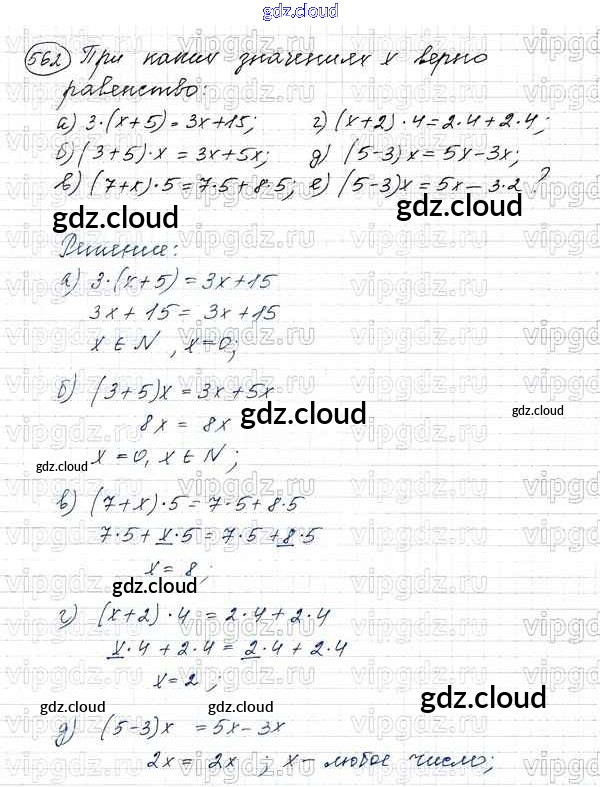 gdz.cloud
562 При каких значениях x верно
равенство:
а) 3·(x+5)=3x+15; г) (x+2)·4=2·4+2·4;
б) (3+5)·x=3x+5x; д) (5-3)x=5x-3x;
в) (7+x)·5=7·5+8·5; е) (5-3)x=5x-3·2?
gdz.cloud gdz.cloud
Решение:
а) 3·(x+5)=3x+15
3x+15=3x+15
x∈N, x=0;
б) (3+5)x=3x+5x
8x = 8x
gdz.cloud gdz.cloud
gdz.cloud
x=0, x∈N;
в) (7+x)·5=7·5+8·5
7·5+x·5=7·5+8·5
x=8;
gdz.cloud
г) (x+2)·4=2·4+2·4
x·4+2·4=2·4+2·4
x=2;
gdz.cloud gdz.cloud gdz.cloud
д) (5-3)x=5x-3x
2x=2x; x-любое число;
vipgdz.ru